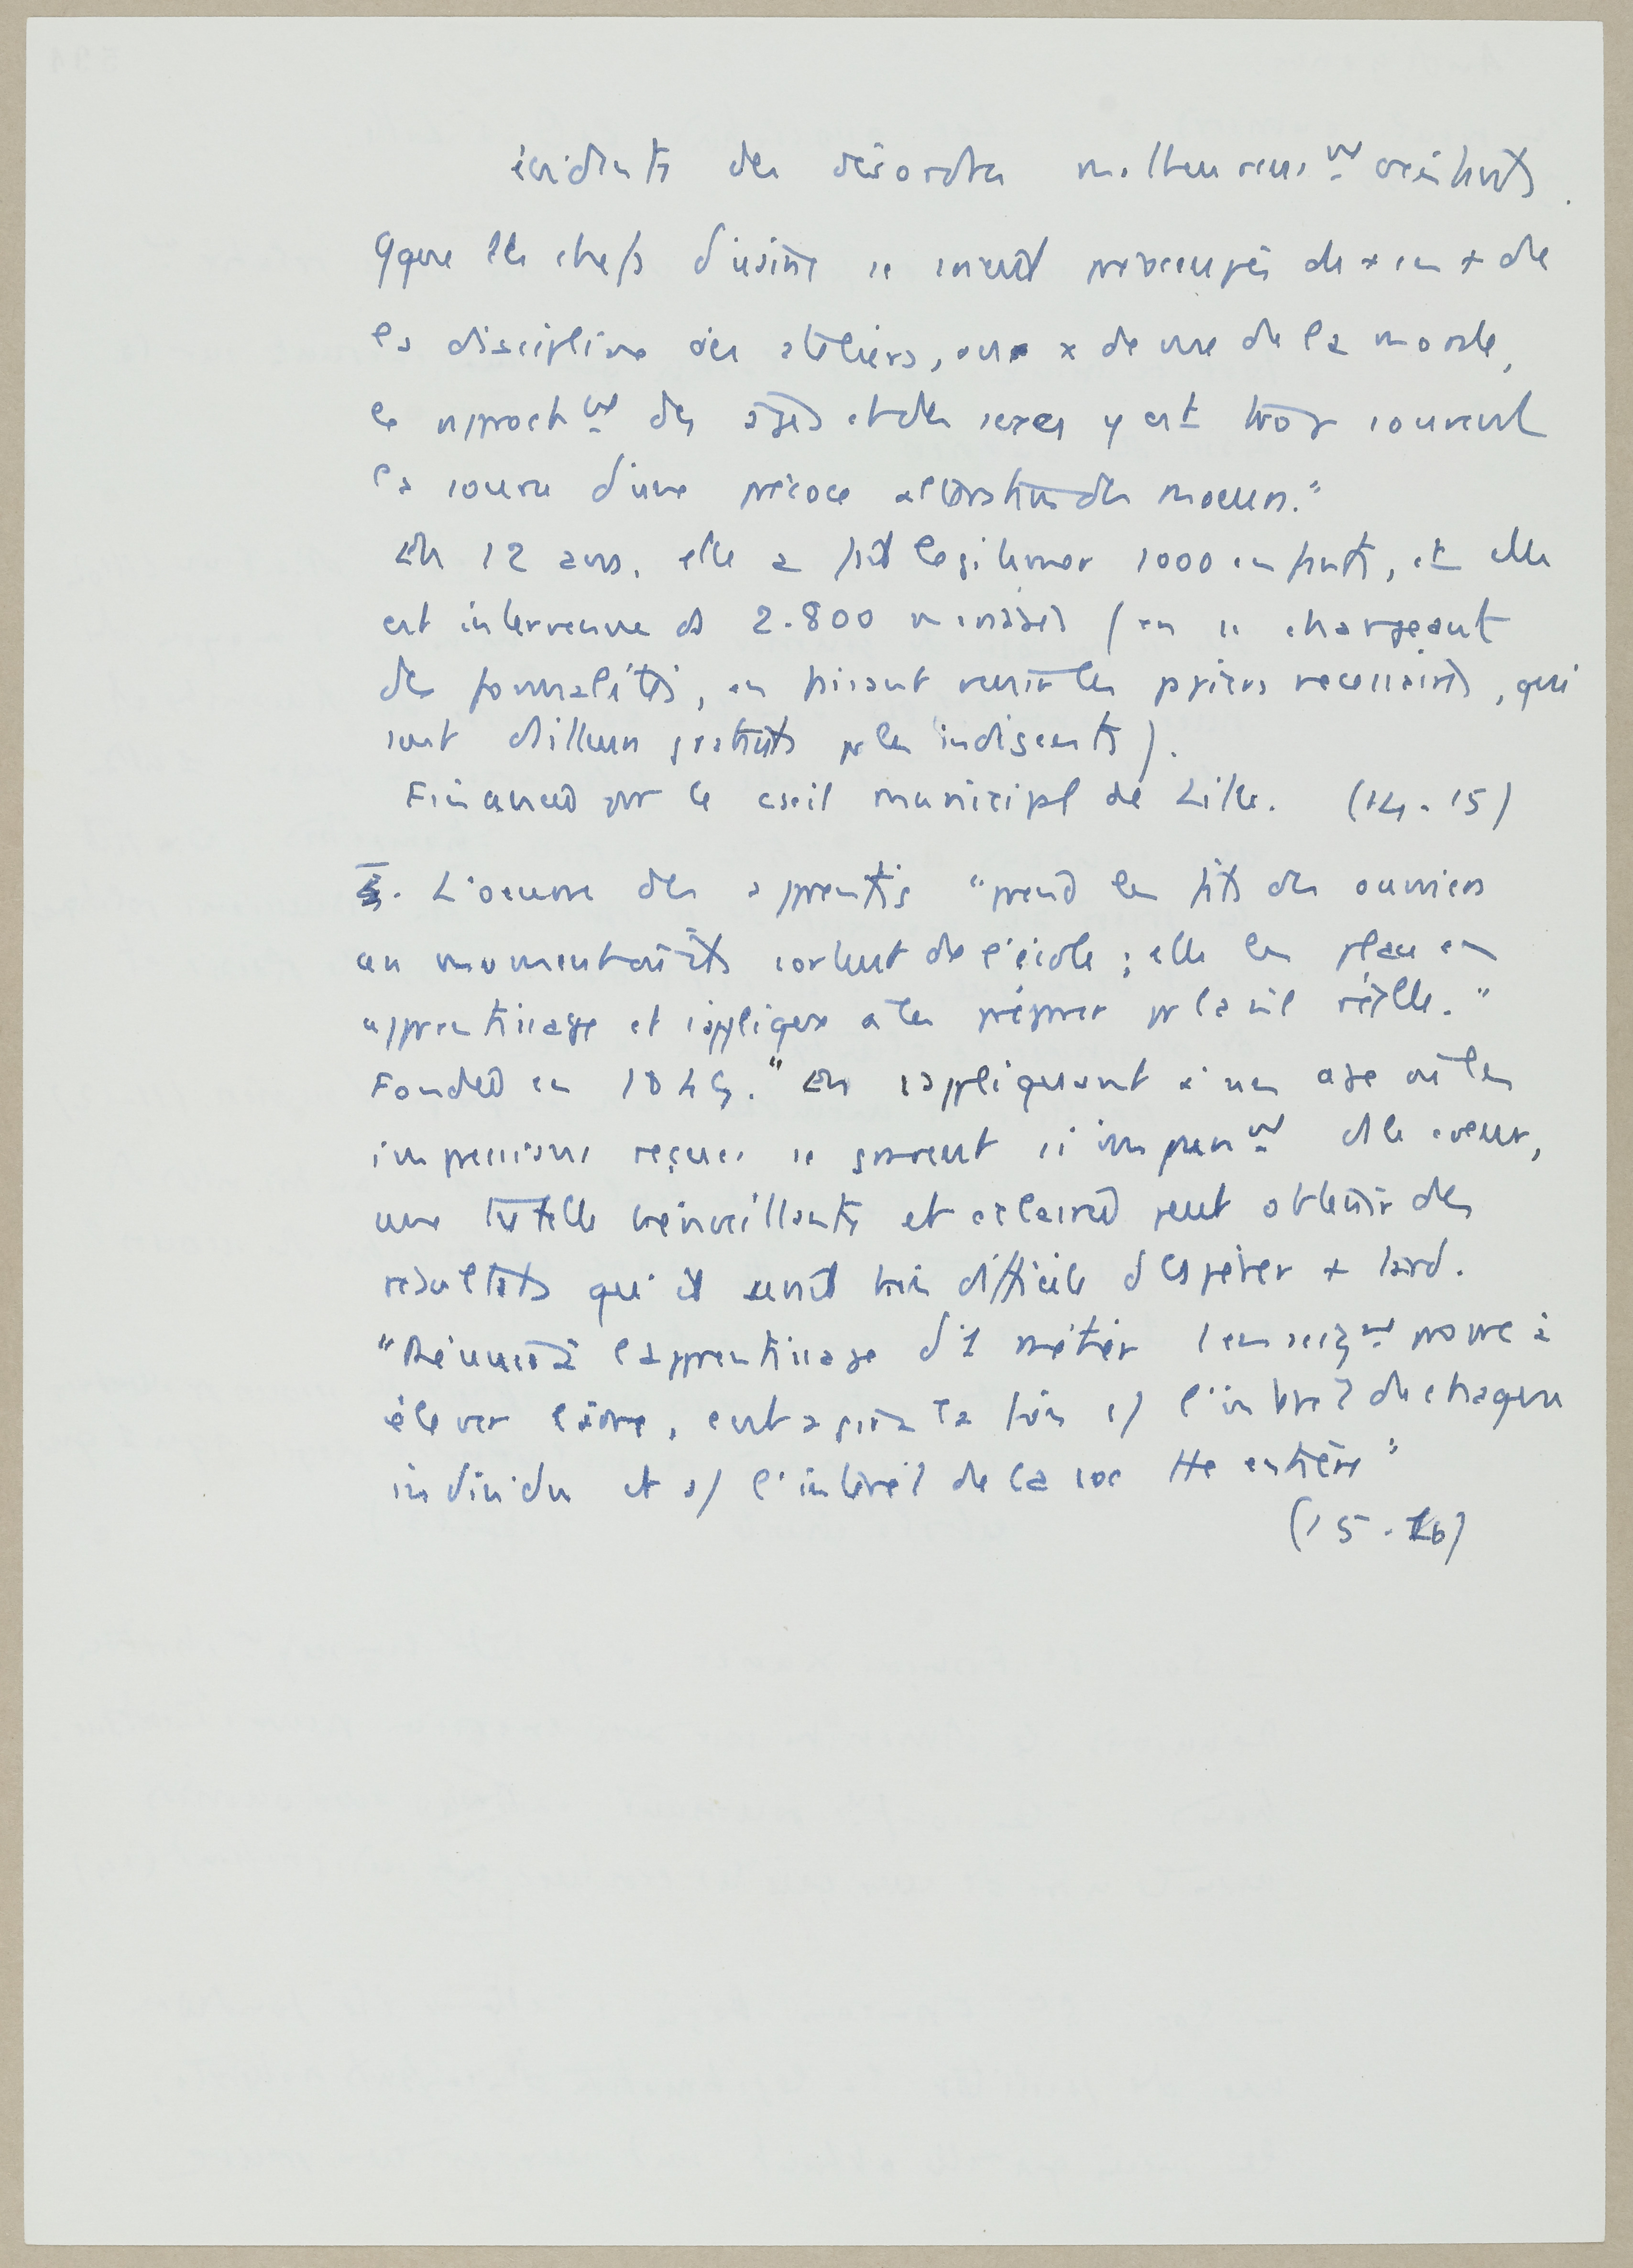 évidents des désordres malheureusᵐᵗ existants.
Qque les chefs d'usine se soient préoccupés de + en + de
la discipline des ateliers, au x de vue de la morale,
le rapprochᵐᵗ des âges et des sexes y est trop souvent
la source d'une précoce altération des moeurs."
En 12 ans, elle a fait légitimer 1000 enfants, et elle
est intervenue ds 2.800 mariages (en se chargeant
des formalités, en faisant venir les papiers nécessaires, qui
sont d'ailleurs gratuits pr les indigents).
Financée par le cseil municipal de Lille. (14-15)
L'oeuvre des apprentis "prend les fils des ouvriers
au moment où ils sortent de l'école ; elle les place en
apprentissage et s'applique à les préparer pr la vie réelle."
Fondée en 1849. "En s'appliquant à un âge où les
impressions reçues se gravent si impᵐᵗ ds le coeur,
une tutelle bienveillante et éclairée peut obtenir des
résultats qu'il serait très difficile d'espérer + tard.
"Réunir à l'apprentissage d'1 métier l'enseigᵐᵗ propre à
élever l'âme, c'est agir à la fois ds l'intérêt de chaque
individu et ds l'intérêt de la soc tte entière"
(15-16)